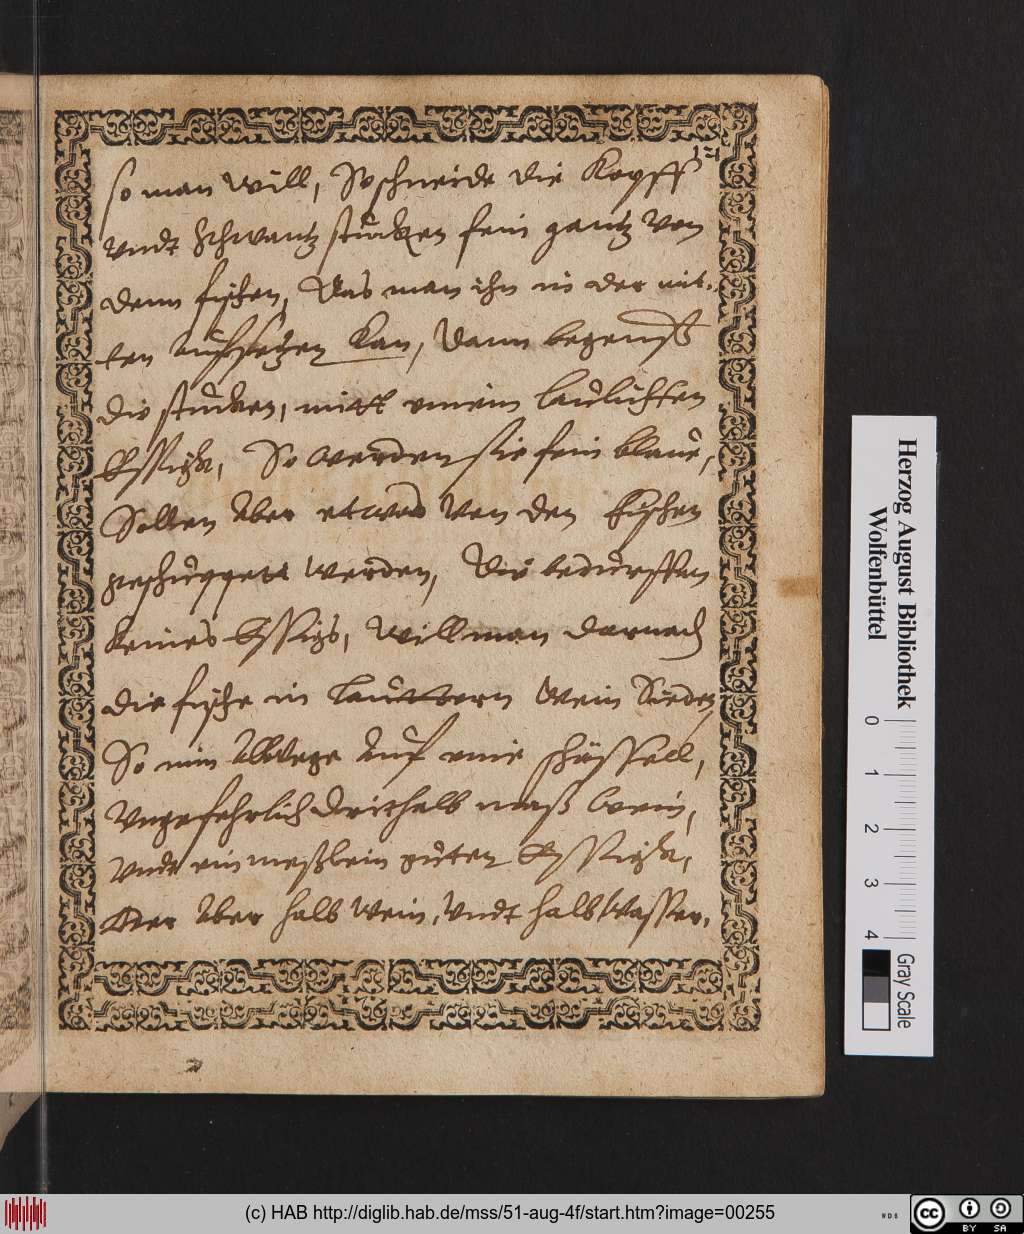 121
so man will, So schneide die Kopff
vndt Schwantz stucken fein gantz von
denn fischen, Das man ihn in der mit-
ten auffsetzen kan, Dann begeuß
die stucken, mitt einem laulichten
Essigk, So werden sie fein blaue,
Sollen aber etwas von den Fischen
geschuppett werden, Die bedurffen
keines Essigs, Will man darnach
die fische in lautterm Wein Sieden
So nim allwege auf eine schüssell,
Vngefehrlich drithalb maß wein,
Vndt ein meßlein guten Essigk,
Oder aber halb Wein, Vndt halb Wasser,
Herzog August Bibliothek
Wolfenbüttel
0 1 2 3 4
Gray Scale
(c) HAB http://diglib.hab.de/mss/51-aug-4f/start.htm?image=00255
WDB
cc BY SA